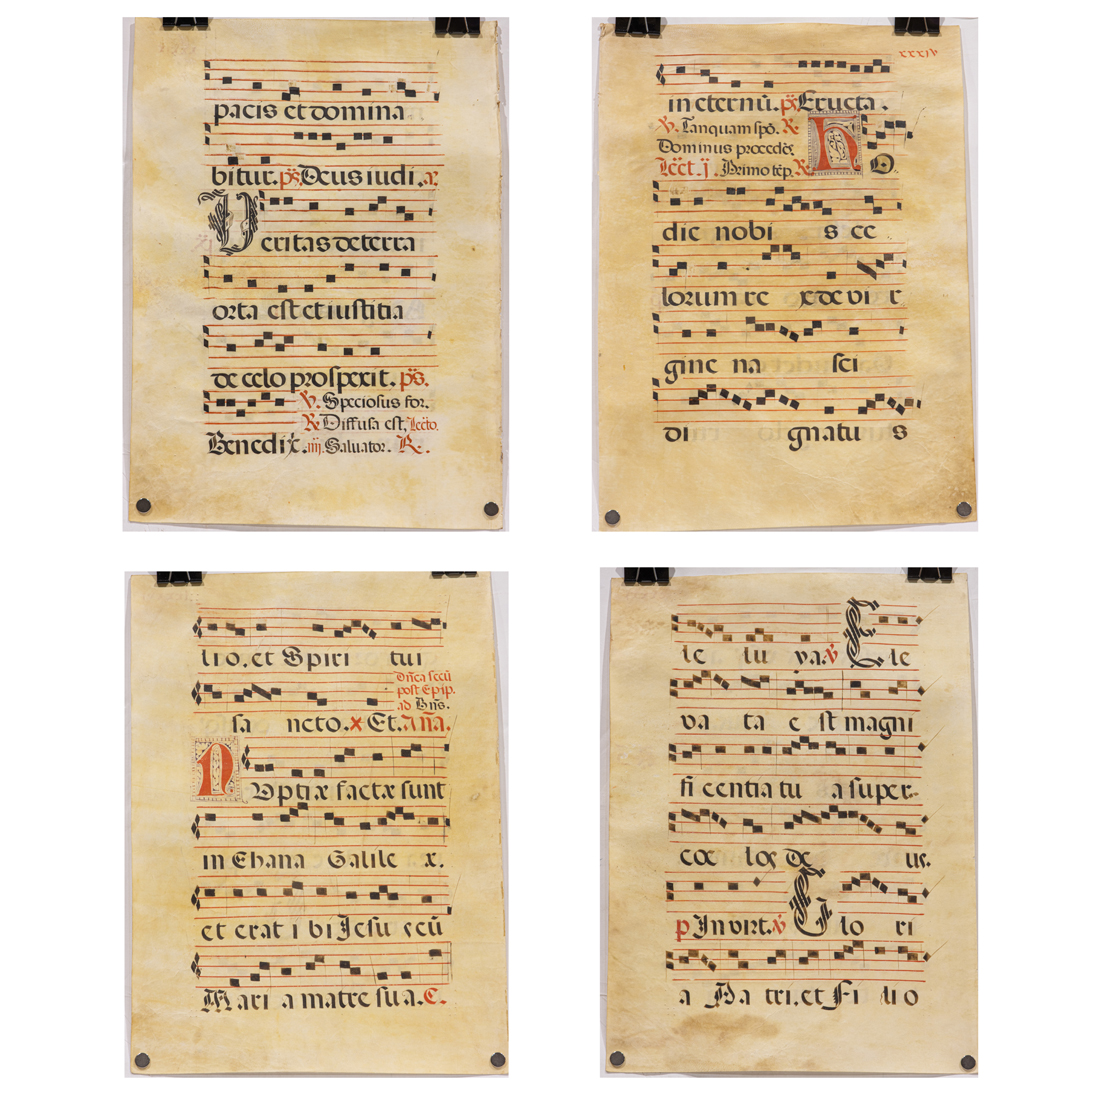 pacis et domina
bitur. p̄s. Deus iudi. a.
Veritas de terra
orta est et iustitia
de celo prospexit. p̄s.
℣. Speciosus for.
℟. Diffusa est, Lectio.
Benedix. iiij. Saluator. ℟.
xxxiv
in eternū. p̄s. Eructa.
℣. Tanquam spō. ℟.
Dominus procedēs
Lect. j. Primo tēp. ℟. HO
die nobi s ce
lorum re x de vi r
gine na sci
di gnatu s
li o. et Spiri tui
Dn̄ca secū
post Epip.
ad Vn̄s.
sa ncto. x Et. Añã.
NVptiæ factæ sunt
in Chana Galile æ.
et erat i bi Jesu cū
Mari a matre su a. E.
le lu ya. ℣ Ele
va ta e st magni
fi centia tu a super
cœ los De us.
p In virt. ℣ Glo ri
a Pa tri. et Fi li o